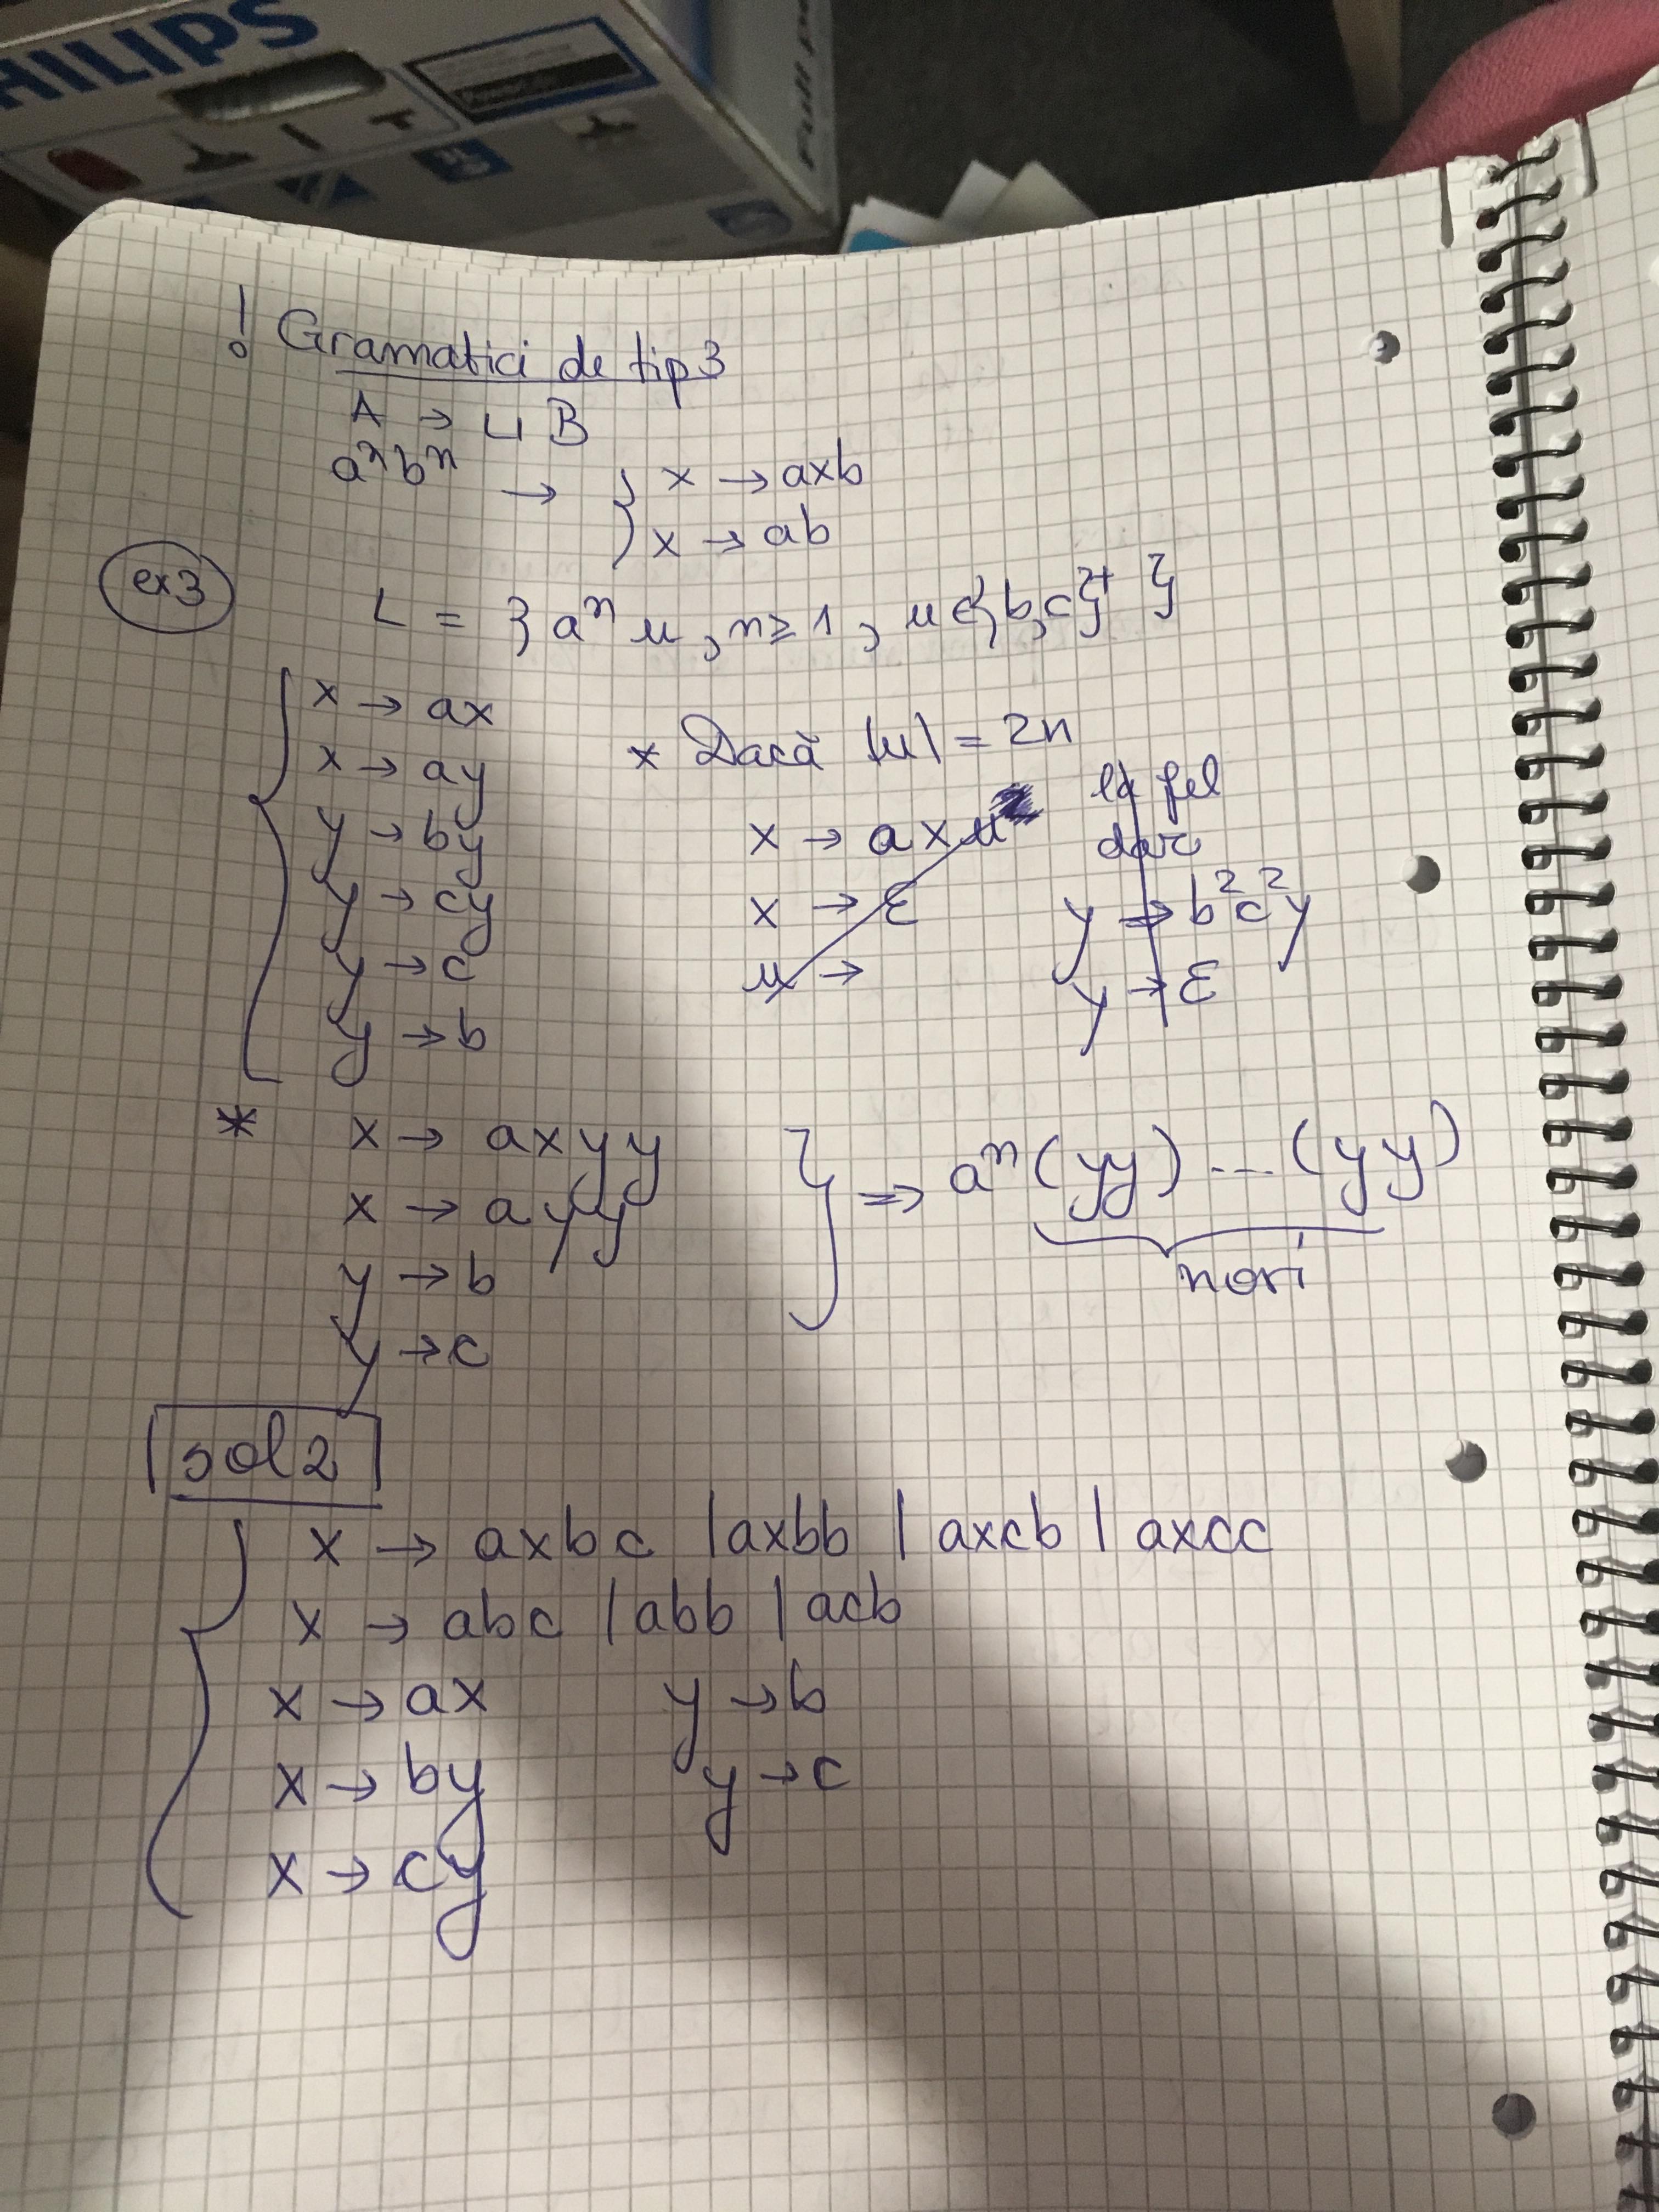 PHILIPS
Full p
! Gramatici de tip 3
A → uB
aⁿbⁿ → { x → axb
x → ab
ex3 L = { aⁿu, n ≥ 1, u ∈ {b,c}⁺ }
x → ax
x → ay
y → by
y → cy
y → c
y → b
* Dacă |u| = 2n
x → axu
x → ε
u →
la fel
dar
y → b²c²y
y → ε
* x → axyy
x → ayy
y → b
y → c
} => aⁿ(yy)...(yy)
n ori
sol 2
x → axbc | axbb | axcb | axcc
x → abc | abb | acb
x → ax y → b
x → by y → c
x → cy